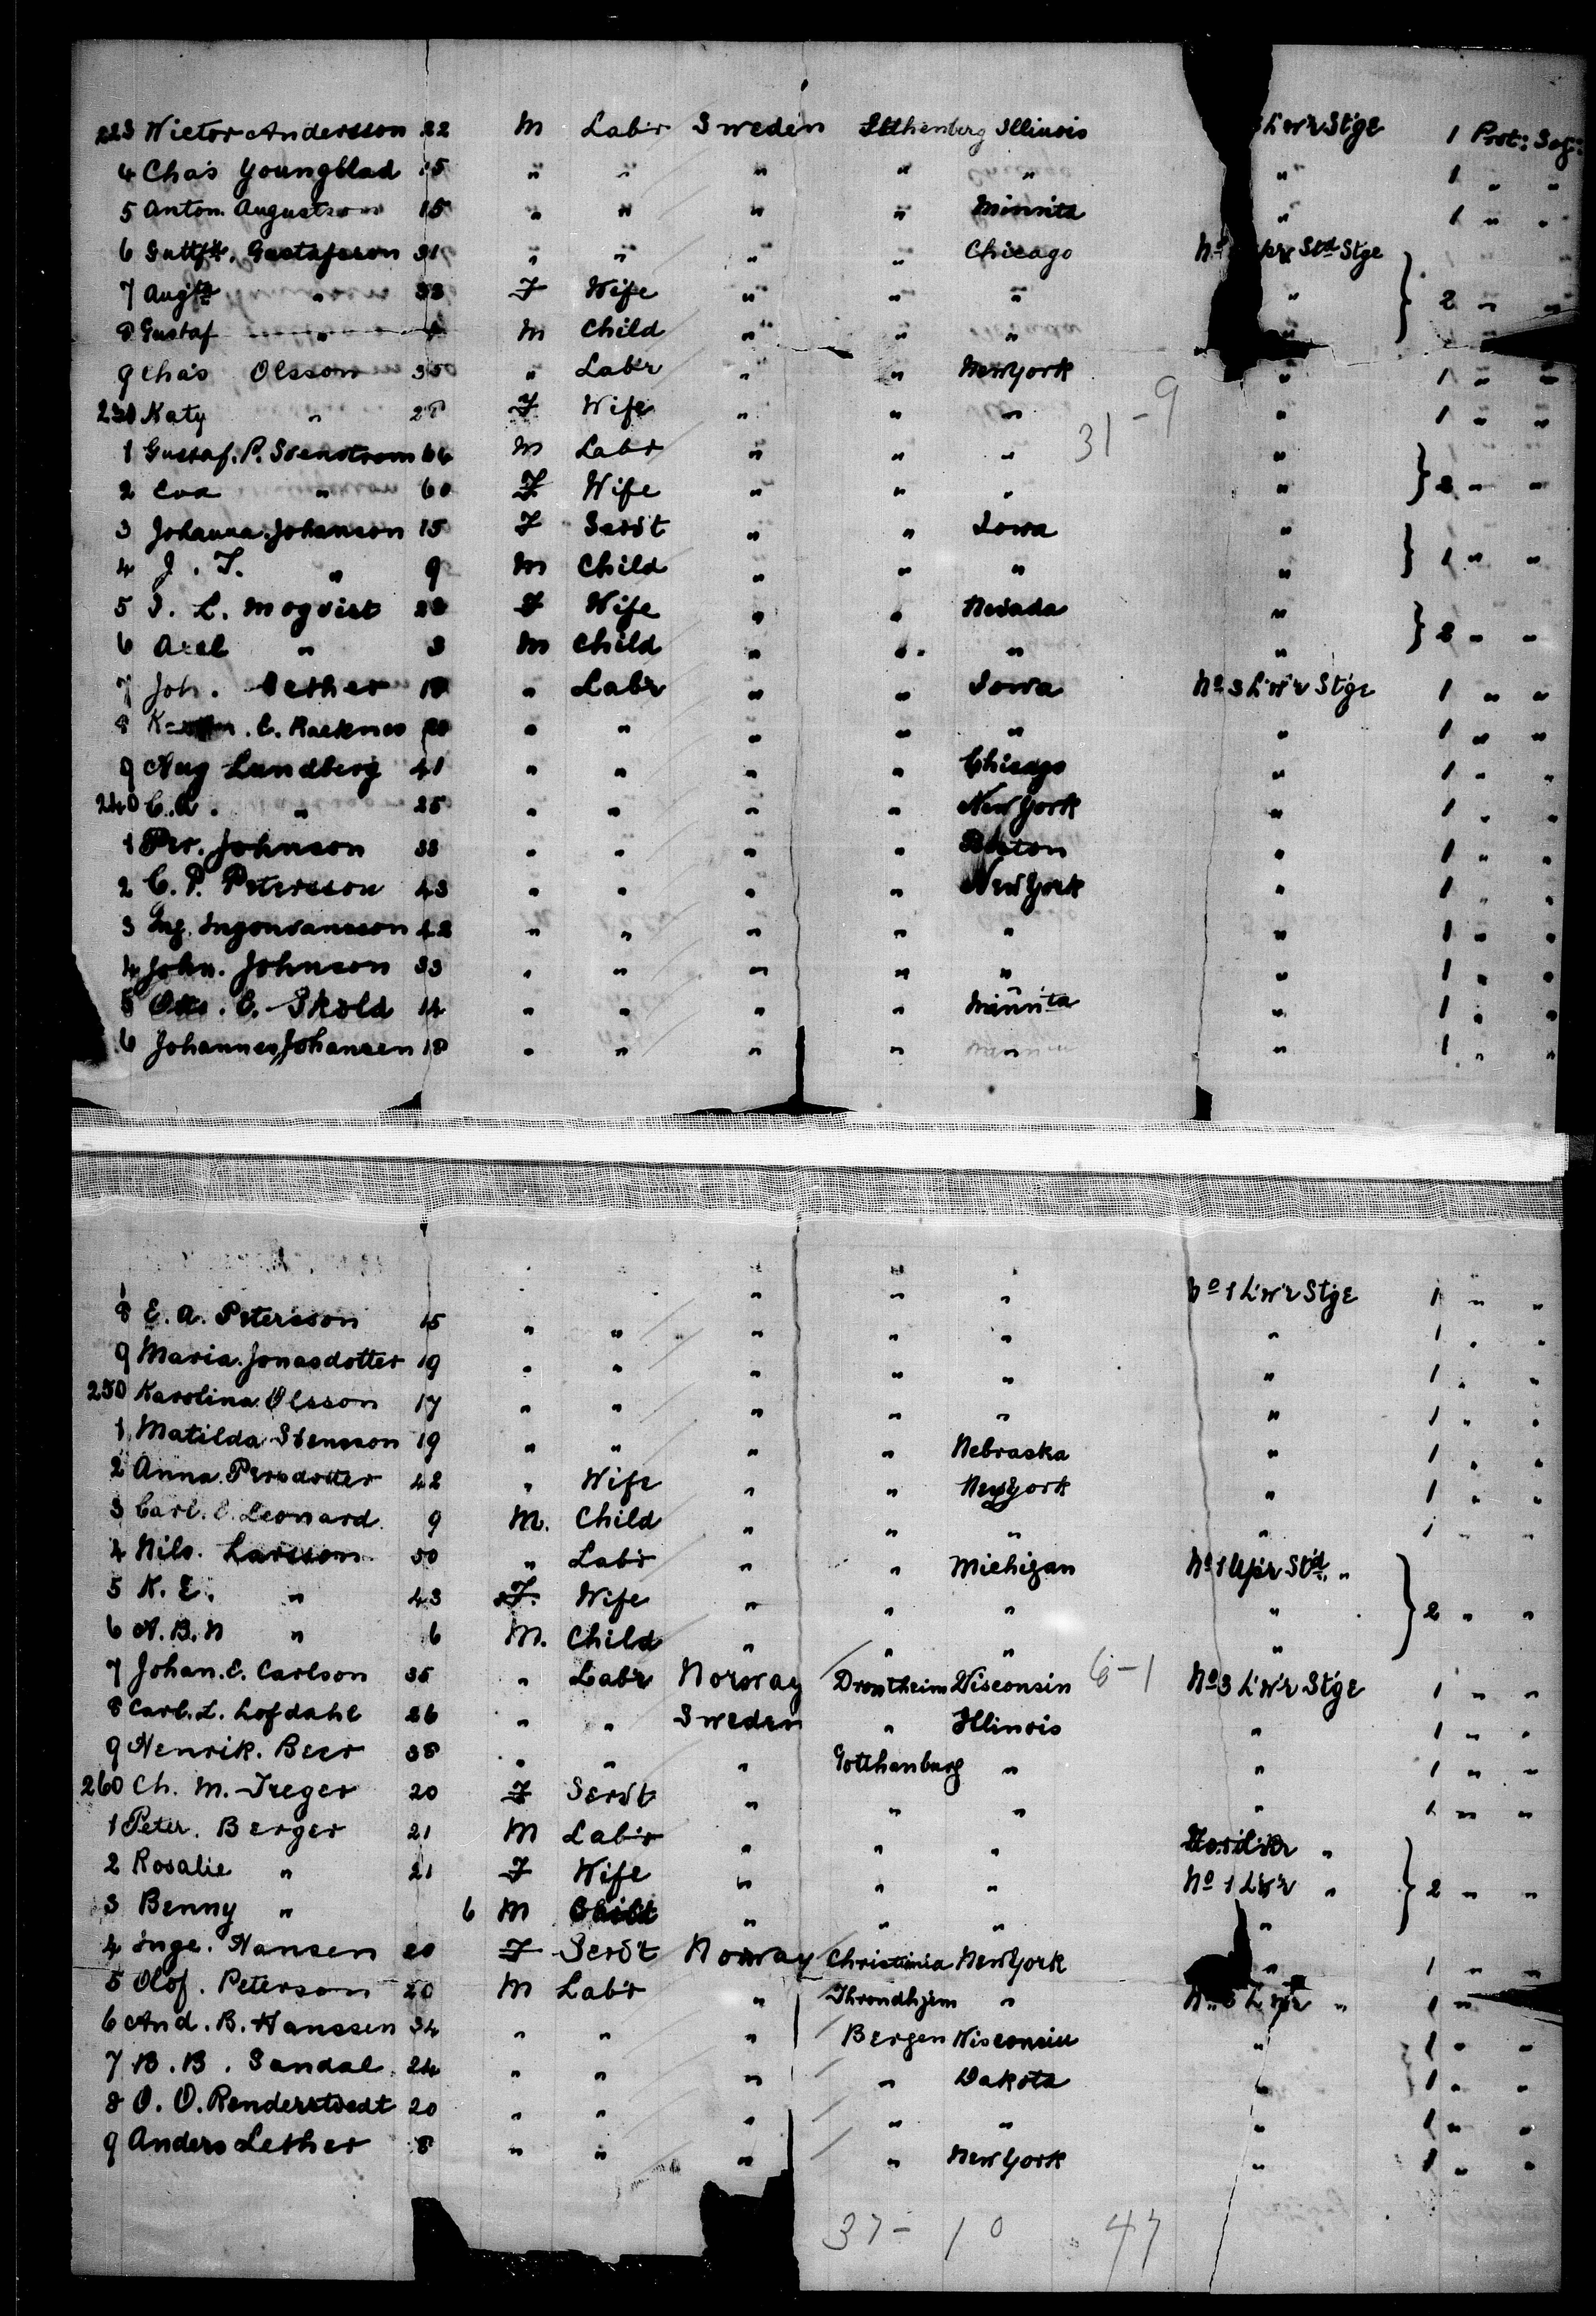 223 Victor Andersson 22 M Lab'r Sweden Illinois L'w'r St'ge 1 Prot:
4 Chas Youngblad 15 " " " " " " 1 " "
5 Anton Augustson 15 " " " " Minn'ta " 1 " "
6 Gustafsson 31 " " " " Chicago Upr St'd Stge
7 Aug'ta " 33 F Wife " " " " 2 " "
8 Gustaf " M Child " " " "
9 Chas Olsson 35 " Lab'r " " New York " 1 " "
230 Katy " 28 F Wife " " " " 1 " "
31-9
1 Gustaf. P. Svenstrom 66 M Lab'r " " " "
2 Eva " 60 F Wife " " " " 2 " "
3 Johanna Johanson 15 F Serv't " " Iowa "
4 J. F. " 9 M Child " " " " 1 " "
5 L. Moqvist F Wife " " Nevada "
6 Axel " 3 M Child " " " " 2 " "
7 Joh. " Lab'r " " Iowa No 3 L'w'r St'ge 1 " "
8 E. Racknes 20 " " " " " " 1 " "
9 Aug Lundberg 41 " " " " Chicago " 1 " "
240 C. A. " 25 " " " " New York " 1 " "
1 Per. Johnson 33 " " " " Boston " 1 " "
2 C. P. Petersson 43 " " " " New York " 1 " "
3 Ing. 42 " " " " " " 1 " "
4 John. Johnson 33 " " " " " " 1 " "
5 Otto. E. Skold 14 " " " " Minn'ta " 1 " "
6 Johannes Johansen 18 " " " " " " 1 " "
" " " " " No 1 L'w'r Stge 1 " "
8 E. A. Petersson 15 " " " " " " 1 " "
9 Maria Jonasdotter 19 " " " " " " 1 " "
250 Karolina Olsson 17 " " " " " " 1 " "
1 Matilda Svensson 19 " " " " Nebraska " 1 " "
2 Anna Persdotter 42 " Wife " " New York " 1 " "
3 Carl. E. Leonard 9 M. Child " " " " 1 " "
4 Nils. Larsson 50 " Lab'r " " Michigan No 1 Up'r St'd. "
5 K. E. " 43 F. Wife " " " " 2 " "
6 A. B. N " 6 M. Child " " " "
7 Johan. E. Carlson 35 " Lab'r Norway Drontheim Wisconsin 6-1 No 3 L'w'r Stge 1 " "
8 Carl. L. Lofdahl 26 " " Sweden " Illinois " 1 " "
9 Henrik. Beer 38 " " " Gotthenburg " " 1 " "
260 Ch. M. Treger 20 F Serv't " " " " 1 " "
1 Peter. Berger 21 M Lab'r " " " "
2 Rosalie " 21 F Wife " " " No 1 L'w'r " 2 " "
3 Benny " 6 M Child " " " "
4 Inge. Hansen 20 F Serv't Norway Christinia New York " 1 " "
5 Olof. Peterson 20 M Lab'r " Throndhjem " " 1 "
6 And. B. Hanssen 34 " " " Bergen Wisconsin " 1 " "
7 B. B. Sandal 24 " " " " Dakota " 1 " "
8 O. O. 20 " " " " " " 1 " "
9 Anders Lether 8 " " " " New York " 1 " "
37-10 47